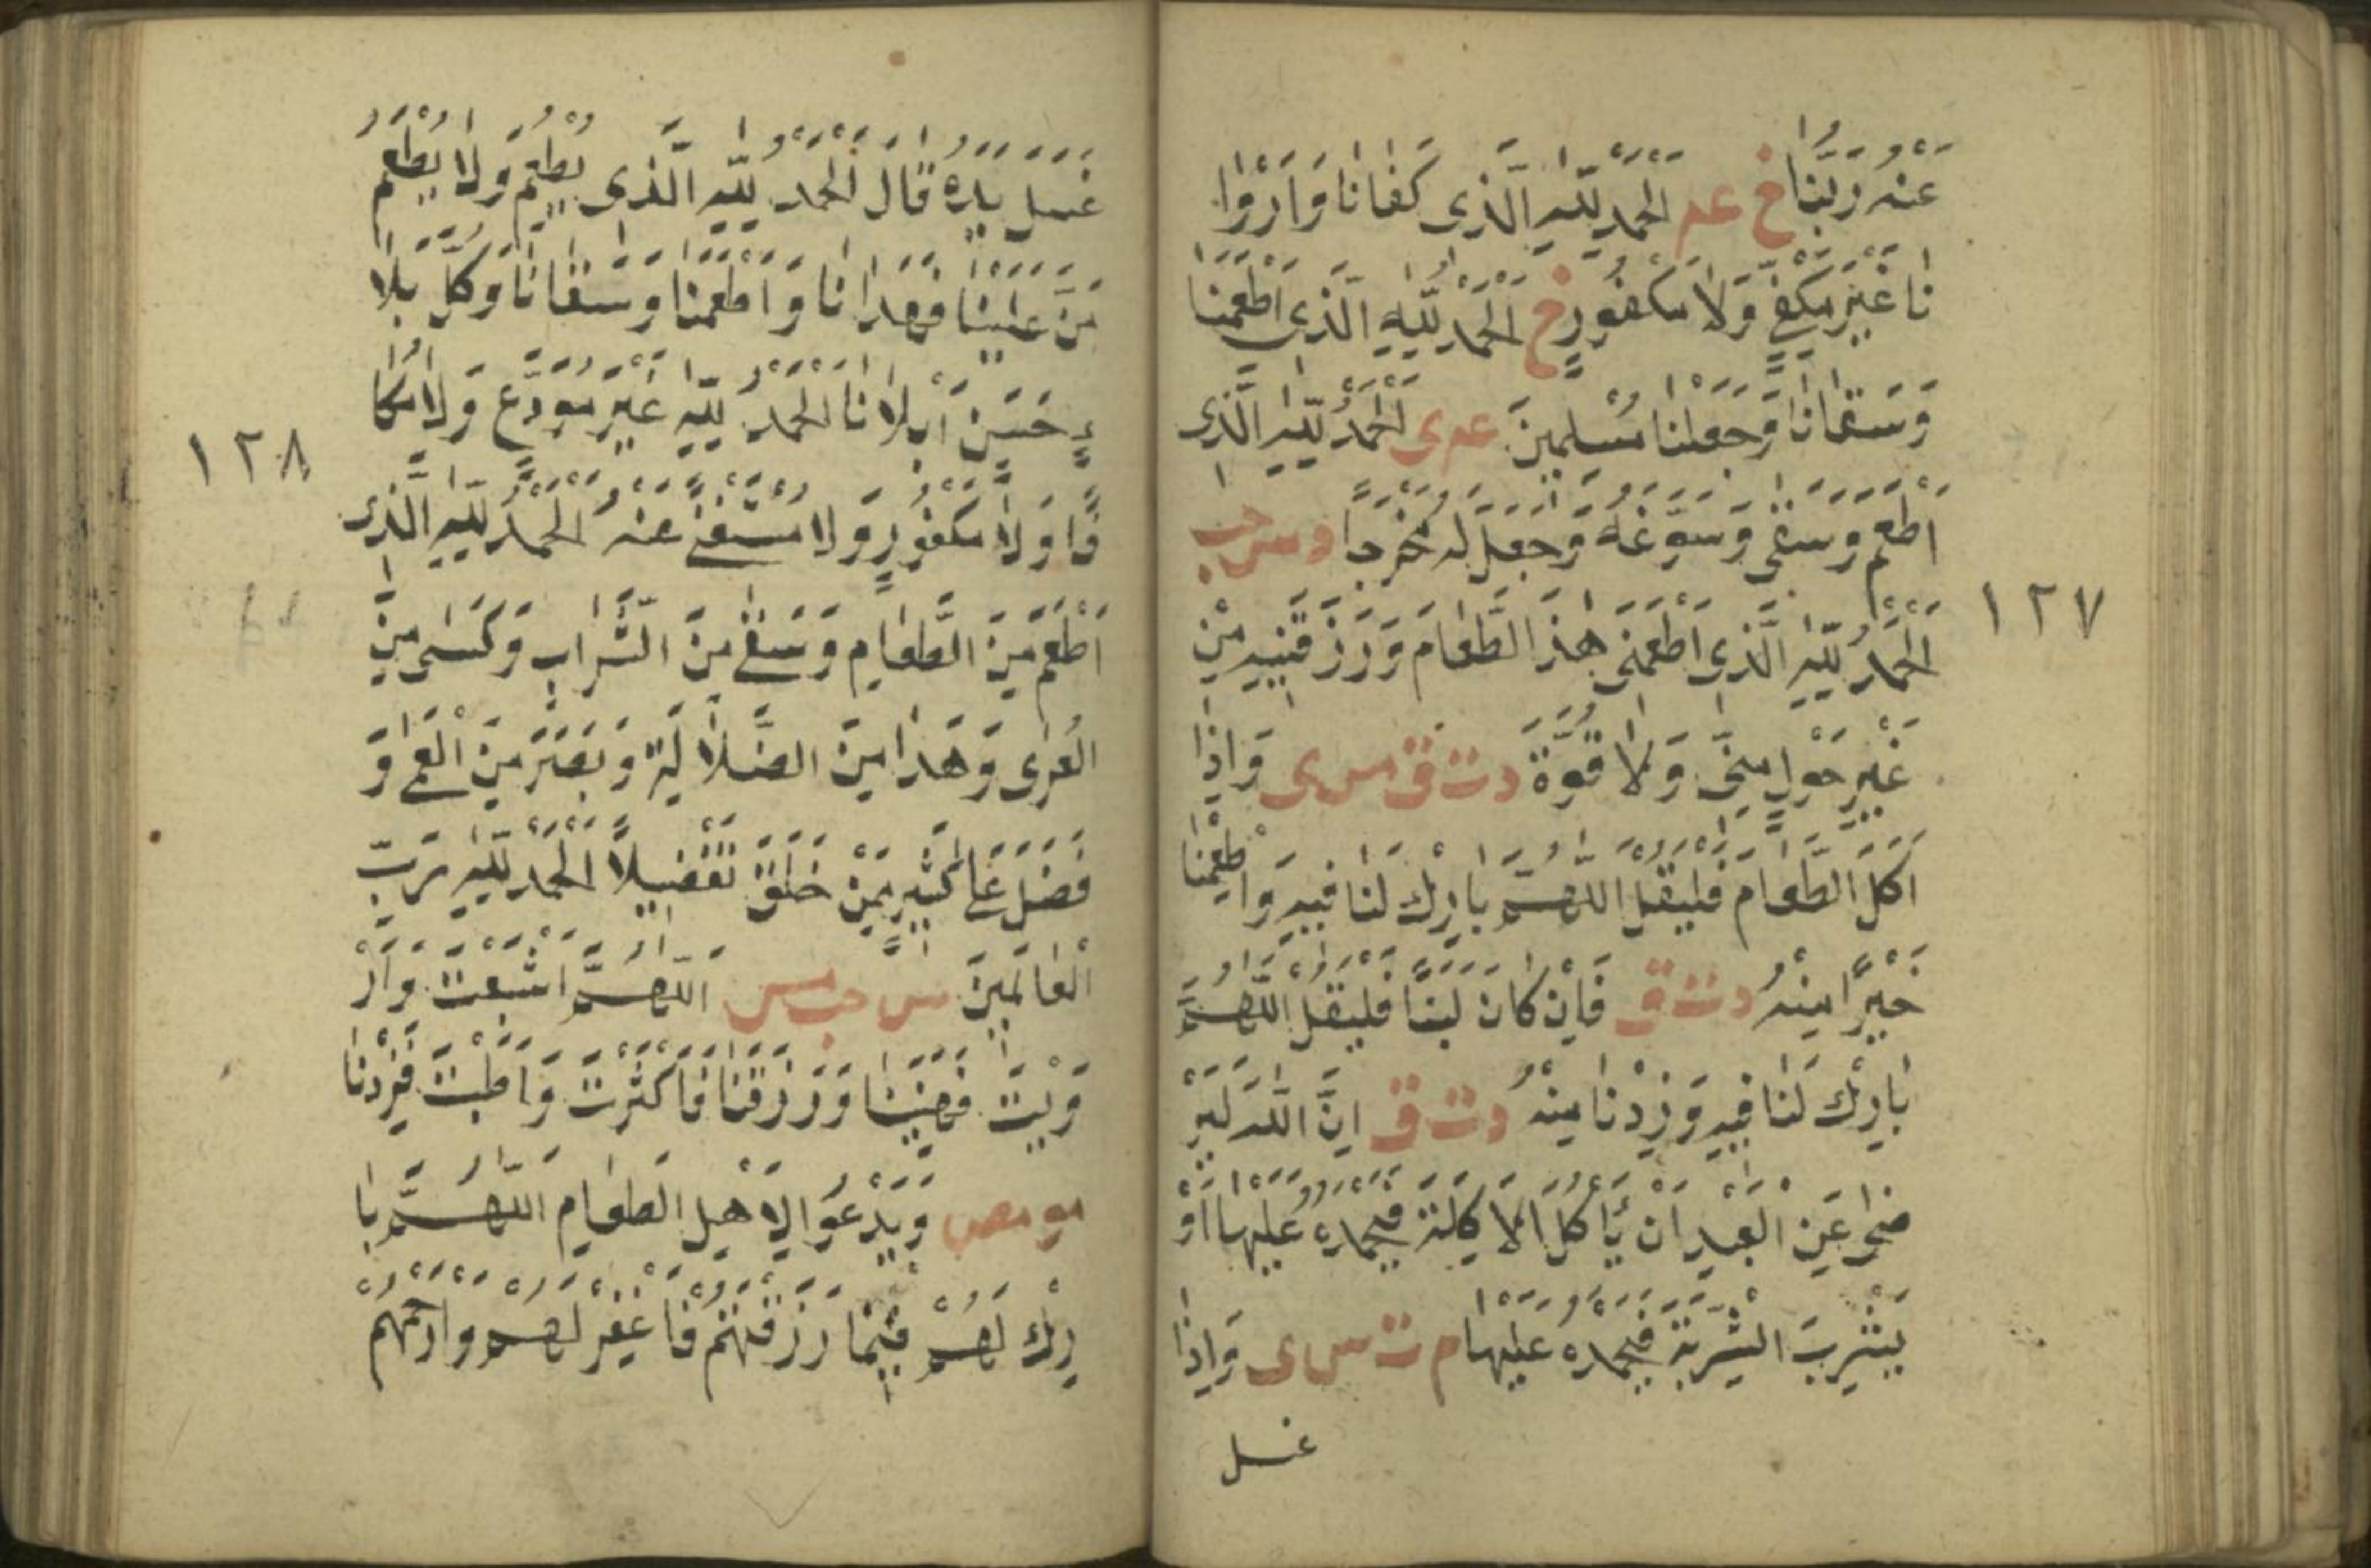 عَنْهُ رَبُّنَا خ عه اَلْحَمْدُ لِلّٰهِ الَّذِى كَفَانَا وَاَرْوَا
نَا غَيْرَ مَكْفِىٍّ وَلَا مَكْفُورٍ خ اَلْحَمْدُ لِلّٰهِ الَّذِى اَطْعَمَنَا
وَسَقَانَا وَجَعَلَنَا مُسْلِمِينَ عه ى اَلْحَمْدُ لِلّٰهِ الَّذِى
اَطْعَمَ وَسَقٰى وَسَوَّغَهُ وَجَعَلَ لَهُ مَخْرَجًا د س حب
اَلْحَمْدُ لِلّٰهِ الَّذِى اَطْعَمَنِى هٰذَ الطَّعَامَ وَرَزَقَنِيهِ مِنْ
غَيْرِ حَوْلٍ مِنِّى وَلَا قُوَّةٍ د ت ق مس ى وَاِذَا
اَكَلَ الطَّعَامَ فَلْيَقُلِ اللّٰهُمَّ بَارِكْ لَنَا فِيهِ وَاَطْعِمْنَا
خَيْرًا مِنْهُ د ت ق فَاِنْ كَانَ لَبَنًا فَلْيَقُلِ اللّٰهُمَّ
بَارِكْ لَنَا فِيهِ وَزِدْنَا مِنْهُ د ت ق اِنَّ اللّٰهَ لَيَرْ
ضٰى عَنِ الْعَبْدِ اَنْ يَأْكُلَ الْاَكْلَةَ فَيَحْمَدُهُ عَلَيْهَا اَوْ
يَشْرَبَ الشَّرْبَةَ فَيَحْمَدُهُ عَلَيْهَا م ت س ى وَاِذَا
غسل
١٢٧
غَسَلَ يَدَهُ قَالَ اَلْحَمْدُ لِلّٰهِ الَّذِى يُطْعِمُ وَلَا يُطْعَمُ
مَنَّ عَلَيْنَا فَهَدَانَا وَاَطْعَمَنَا وَسَقَانَا وَكُلَّ بَلَا
ءٍ حَسَنٍ اَبْلَانَا اَلْحَمْدُ لِلّٰهِ غَيْرَ مُوَدَّعٍ وَلَا مُكَا
فًا وَلَا مَكْفُورٍ وَلَا مُسْتَغْنًى عَنْهُ اَلْحَمْدُ لِلّٰهِ الَّذِى
اَطْعَمَ مِنَ الطَّعَامِ وَسَقٰى مِنَ الشَّرَابِ وَكَسٰى مِنَ
الْعُرٰى وَهَدَا مِنَ الضَّلَالَةِ وَبَصَّرَ مِنَ الْعَمٰى وَ
فَضَّلَ عَلٰى كَثِيرٍ مِمَّنْ خَلَقَ تَفْضِيلًا اَلْحَمْدُ لِلّٰهِ رَبِّ
الْعَالَمِينَ س حب مس اَللّٰهُمَّ اَشْبَعْتَ وَاَرْ
وَيْتَ فَهَنِّئْنَا وَرَزَقْتَنَا فَاَكْثَرْتَ وَاَطَبْتَ فَزِدْنَا
مو مص وَيَدْعُو لِاَهْلِ الطَّعَامِ اَللّٰهُمَّ بَا
رِكْ لَهُمْ فِيمَا رَزَقْتَهُمْ فَاغْفِرْ لَهُمْ وَارْحَمْهُمْ
١٢٨